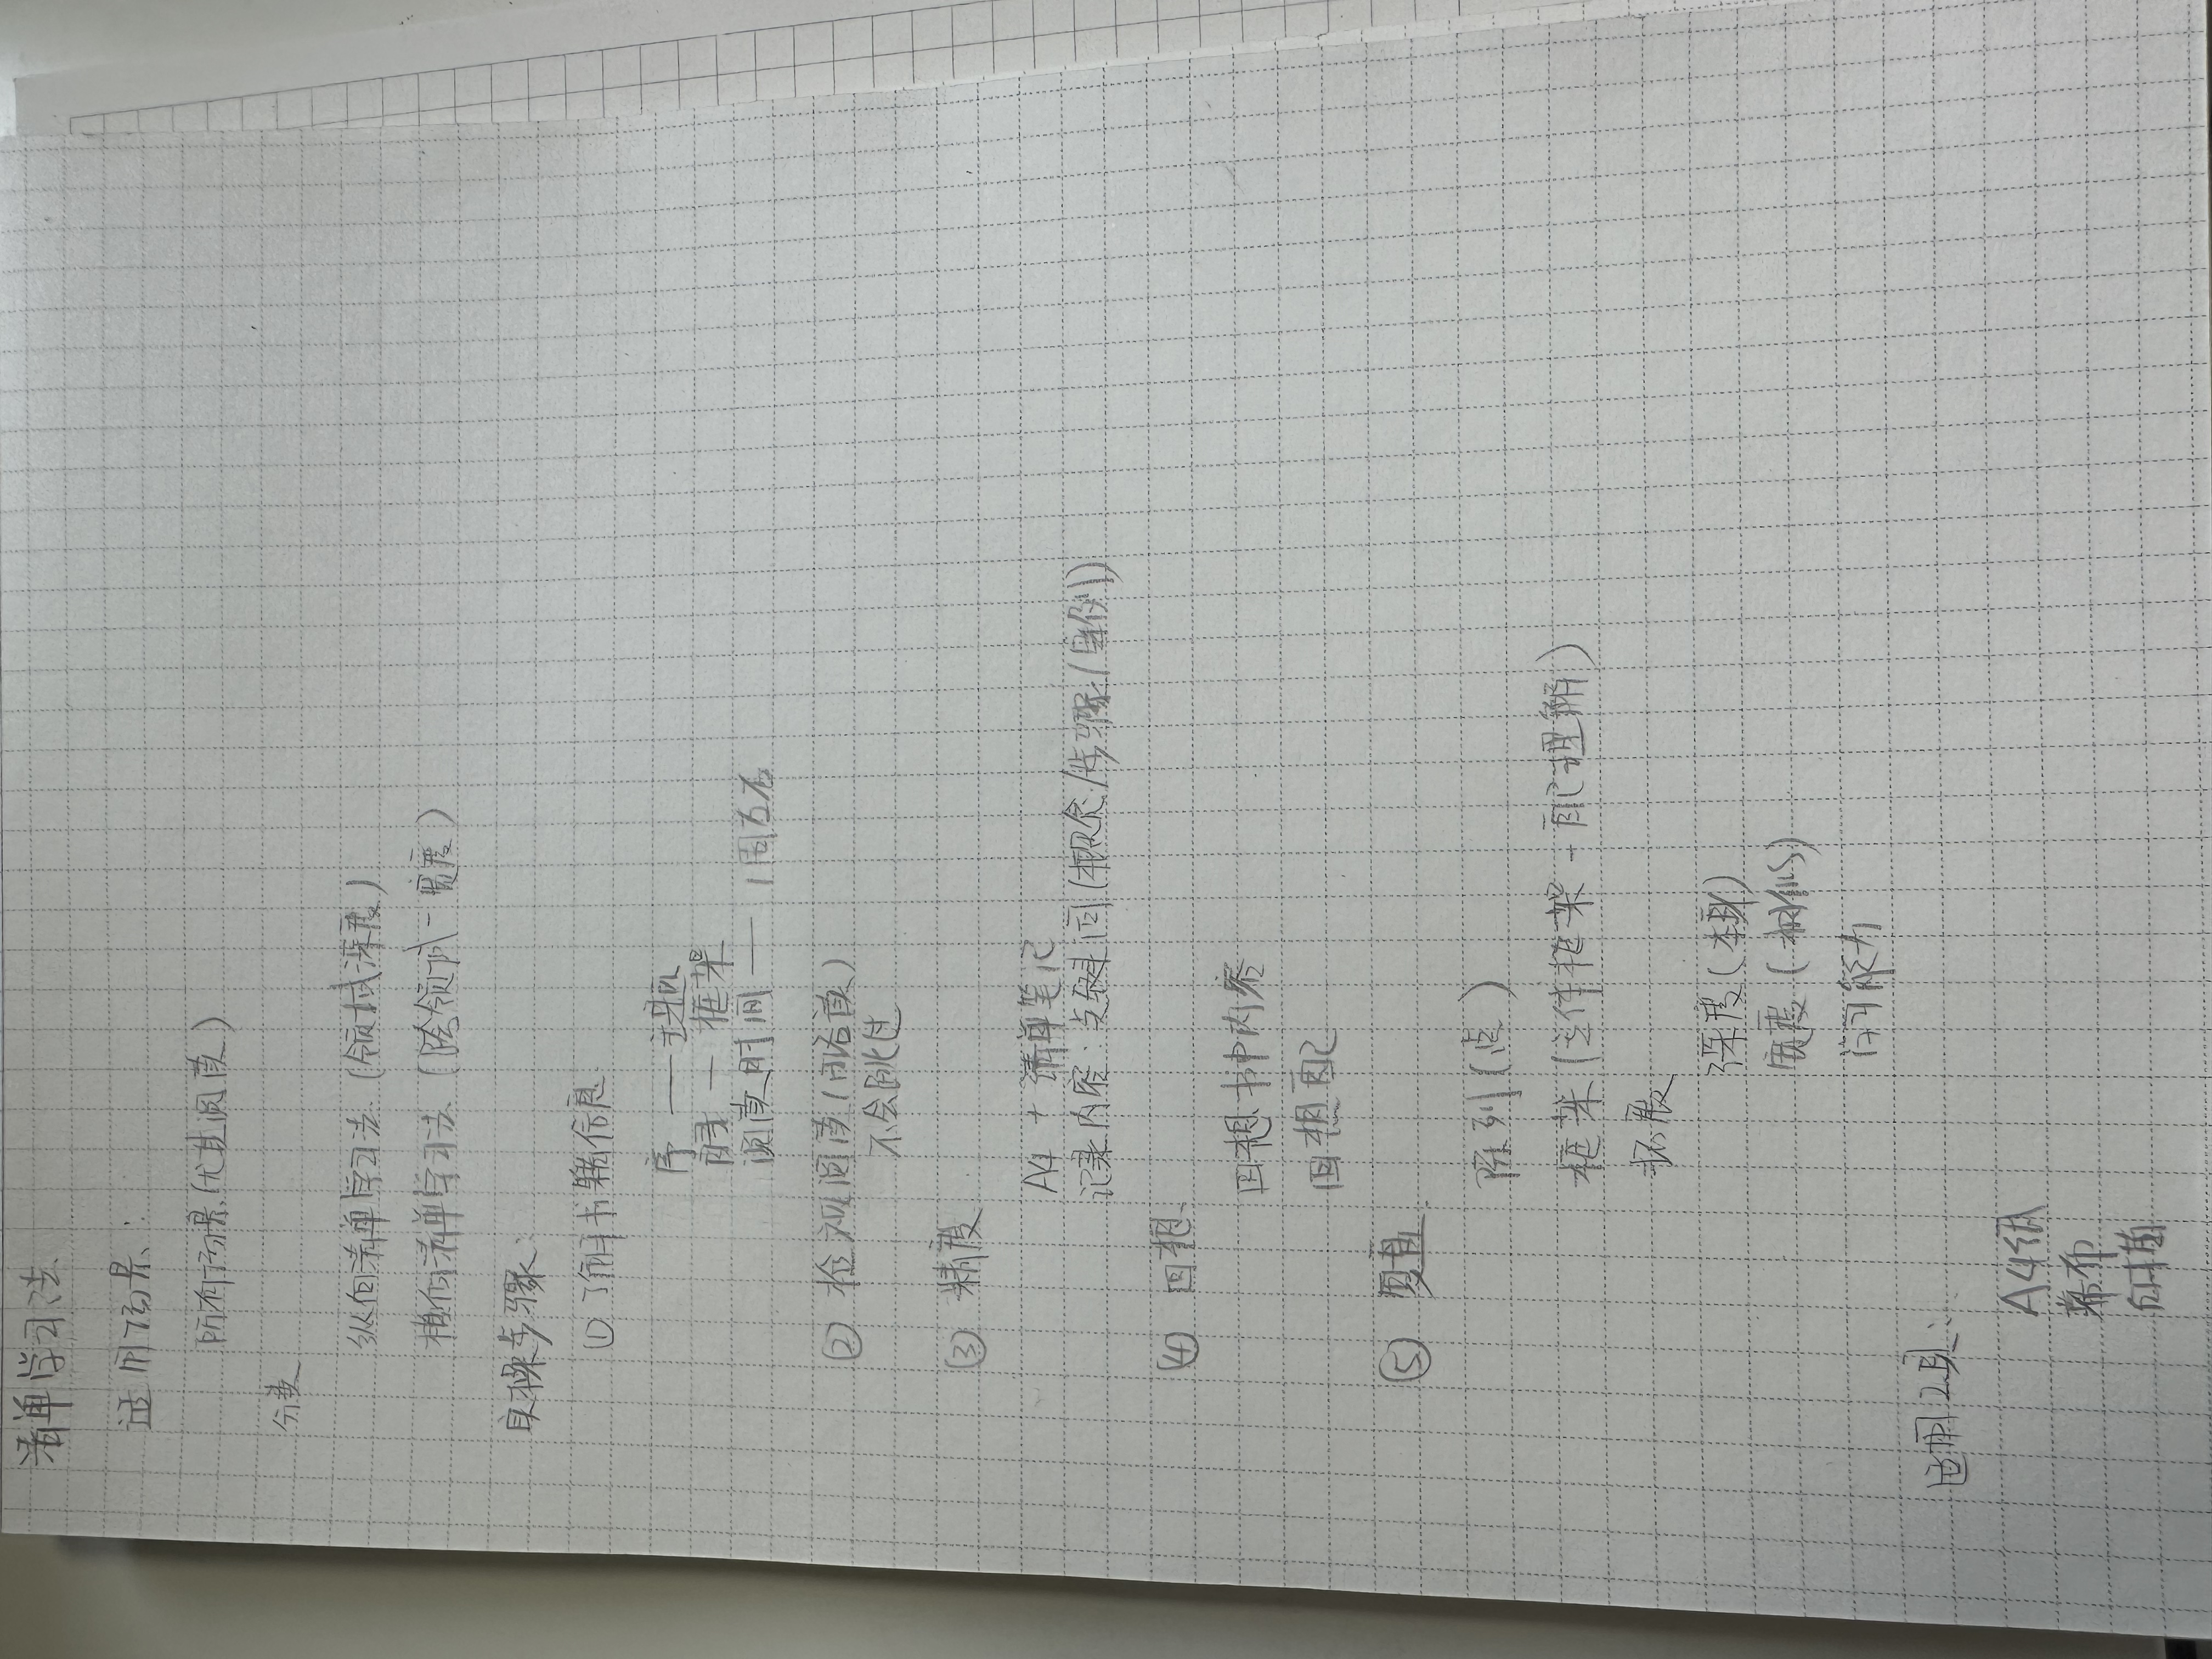 清单学习法
适用场景:
所有场景(尤其阅读)
分类
纵向清单学习法 (领域深度)
横向清单学习法 (跨领域-宽度)
具体步骤:
① 了解书籍信息
序 —— 动机
目录 — 框架
阅读时间 —— 1周左右
② 检视阅读 (略读)
不会跳过
③ 精读
A4 + 清单笔记
记录内容: 关键词 (概念/步骤/案例)
④ 回想
回想书中内容
回想自己
⑤ 复盘
陈列 (点)
框架 (文件框架 + 自己理解)
拓展
深度 (本身)
宽度 (相似)
行动
使用工具:
A4纸
幕布